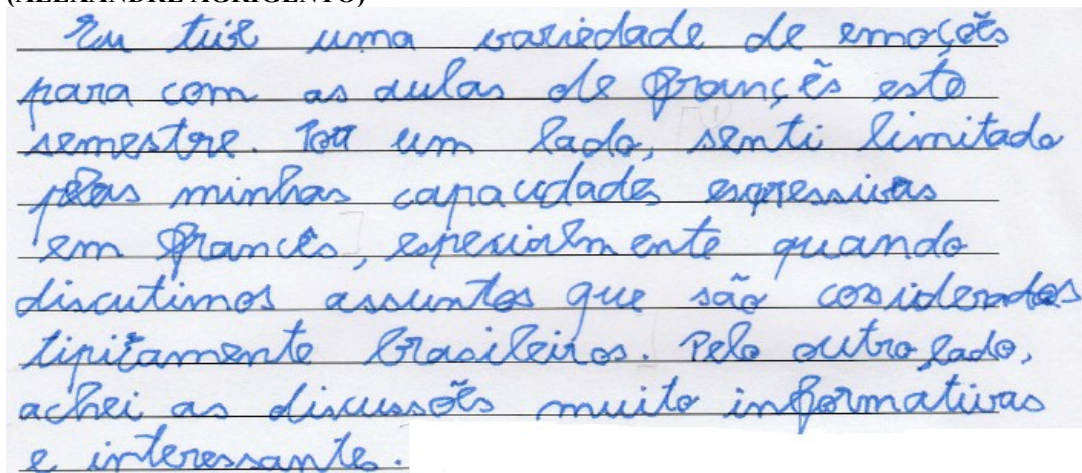 (ALEXANDRE AGRIGENTO)
Eu tive uma variedade de emoções
para com as aulas de françês este
semestre. Por um lado, senti limitado
pelas minhas capacidades expressivas
em francês, especialmente quando
discutimos assuntos que são considerados
tipitamente brasileiros. Pelo outro lado,
achei as discussões muito informativas
e interessantes.